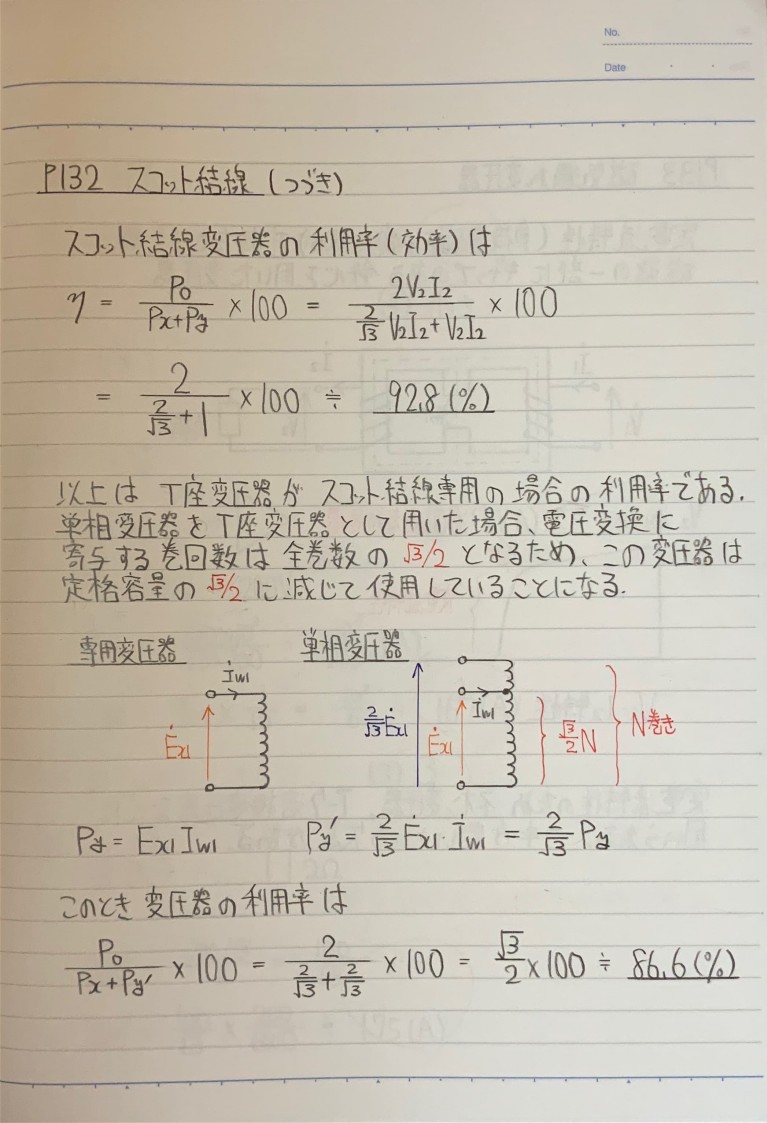 No.
Date
P132 スコット結線 (つづき)
スコット結線変圧器の利用率(効率)は
η = P₀/(Px+Py) × 100 = 2V₂I₂/(2/√3 V₂I₂ + V₂I₂) × 100
= 2/(2/√3 + 1) × 100 ≒ 92.8 (%)
以上は T座変圧器が スコット結線専用の場合の利用率である.
単相変圧器をT座変圧器として用いた場合、電圧変換に
寄与する巻回数は全巻数の √3/2 となるため、この変圧器は
定格容量の √3/2 に減じて使用していることになる.
専用変圧器 単相変圧器
İw1
Ėx1
2/√3 Ėx1
Ėx1
İw1
√3/2 N
N巻き
Py = Ex1 Iw1 Py′ = 2/√3 Ėx1・İw1 = 2/√3 Py
このとき変圧器の利用率は
P₀/(Px+Py′) × 100 = 2/(2/√3 + 2/√3) × 100 = √3/2 × 100 ≒ 86.6 (%)